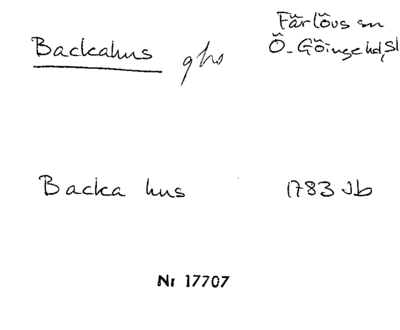 Backahus ghs
Färlövs sn
Ö. Göinge hd, Sk
Backa hus 1783 Jb
Nr 17707